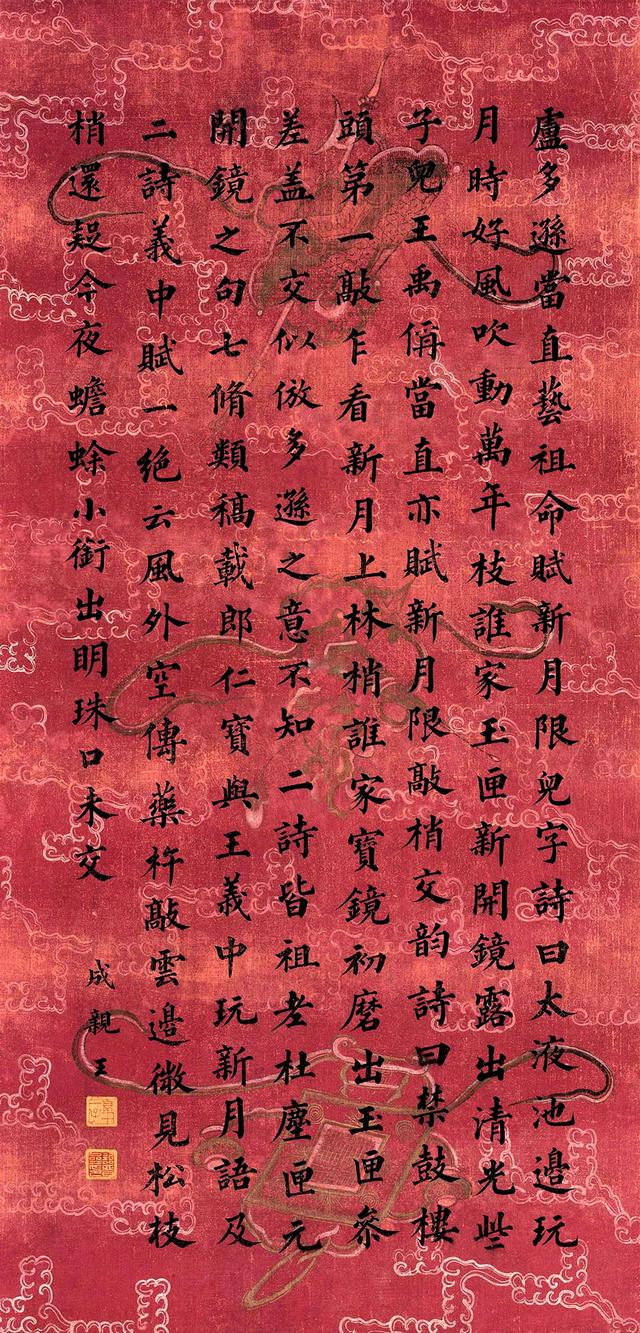 盧多遜當直藝祖命賦新月限兒字詩曰太液池邊玩
月時好風吹動萬年枝誰家玉匣新開鏡露出清光些
子兒王禹偁當直亦賦新月限敲梢交韵詩曰禁鼓樓
頭第一敲乍看新月上林梢誰家寶鏡初磨出玉匣叅
差盖不交似倣多遜之意不知二詩皆祖老杜塵匣元
開鏡之句七脩類稿載郎仁寶與王義中玩新月語及
二詩義中賦一絕云風外空傳藥杵敲雲邉微見松枝
梢還疑今夜蟾蜍小銜出明珠口未交
成親王